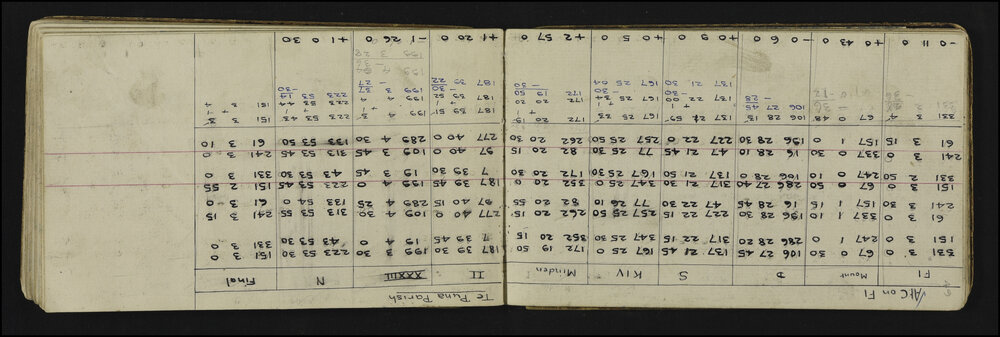 At C on F1 Te Puna Parish
F1 Mount D S KIV Minden II XXXIII N Final
331 3 0 67 0 30 106 27 45 137 21 45 167 25 0 172 19 50 187 39 30 199 3 30 223 53 30 151 3 0
151 3 0 247 1 0 286 28 20 317 22 15 347 25 15 352 20 15 7 39 45 19 4 0 43 53 30 331 3 0
61 3 0 337 1 10 196 28 30 227 22 15 257 25 50 262 20 15 277 40 0 109 4 30 313 53 55 241 3 15
241 3 30 157 1 15 16 28 45 47 22 30 77 26 10 82 20 55 97 40 15 289 4 25 133 54 0 61 3 0
151 3 0 67 0 50 286 27 40 317 21 30 347 25 0 352 20 0 187 39 45 199 4 0 223 53 45 151 2 55
331 2 50 247 0 10 106 28 0 137 21 50 167 25 30 172 20 30 7 39 30 19 3 45 43 53 30 331 3 0
241 3 0 337 0 30 16 28 10 47 21 45 77 25 30 82 20 15 97 40 0 109 3 45 313 53 45 241 3 0
61 3 15 157 1 0 196 28 30 227 22 0 257 25 50 262 20 30 277 40 0 289 4 30 133 53 50 61 3 10
331 3 4 67 0 48 106 28 13 137 21 59 167 25 172 20 19 187 39 51 199 4 223 53 43 151 3 3
106 27 45 137 22 00 167 25 34 172 20 20 187 39 52 199 4 223 53 44 151 3 4
137 21 30 167 25 04 172 19 50 187 39 22 199 3 37 223 53 14
-0 11 0 +0 43 0 -0 6 0 +0 9 +0 5 +2 57 0 +1 20 0 -1 26 0 +1 0 30